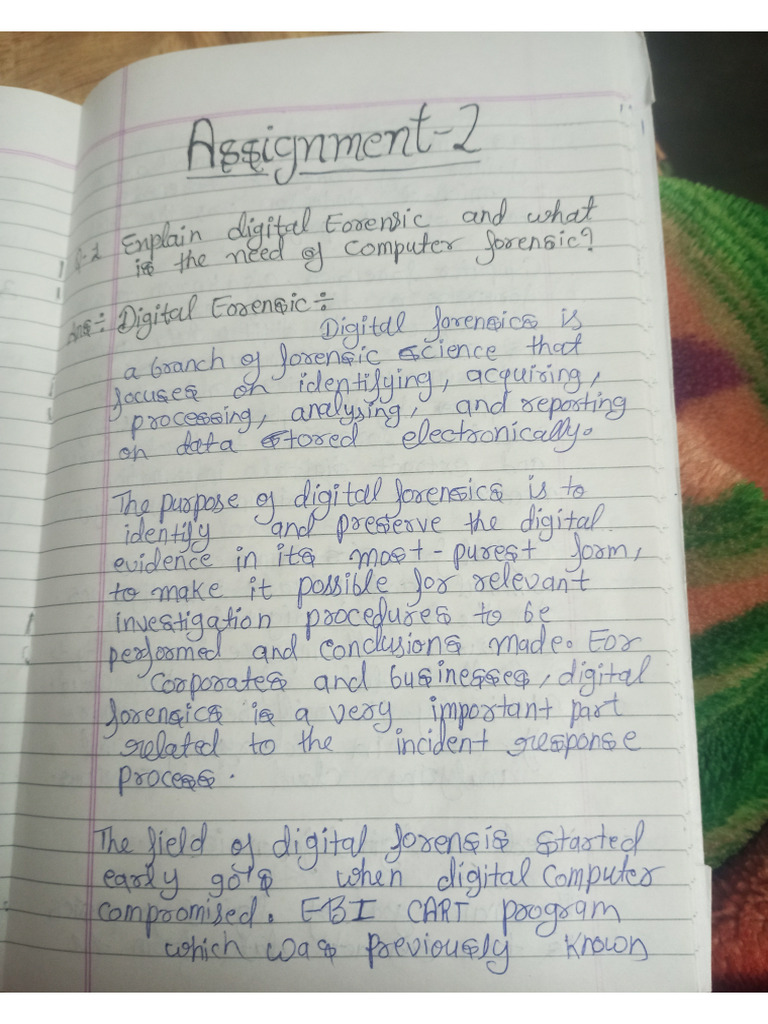 Assignment-2
Q-1 Explain digital Forensic and what
is the need of computer forensic?
Ans÷ Digital Forensic÷
Digital forensics is
a branch of forensic science that
focuses on identifying, acquiring,
processing, analysing, and reporting
on data stored electronically.
The purpose of digital forensics is to
identify and preserve the digital
evidence in its most-purest form,
to make it possible for relevant
investigation procedures to be
performed and conclusions made. For
corporates and businesses, digital
forensics is a very important part
related to the incident response
process.
The field of digital forensis started
early 90's when digital computer
compromised. FBI CART program
which was previously known